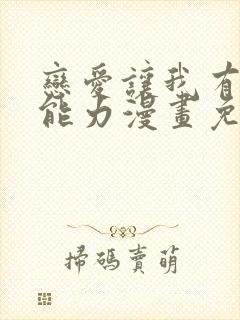 戀愛讓我有
能力漫畫免
掃碼賣萌